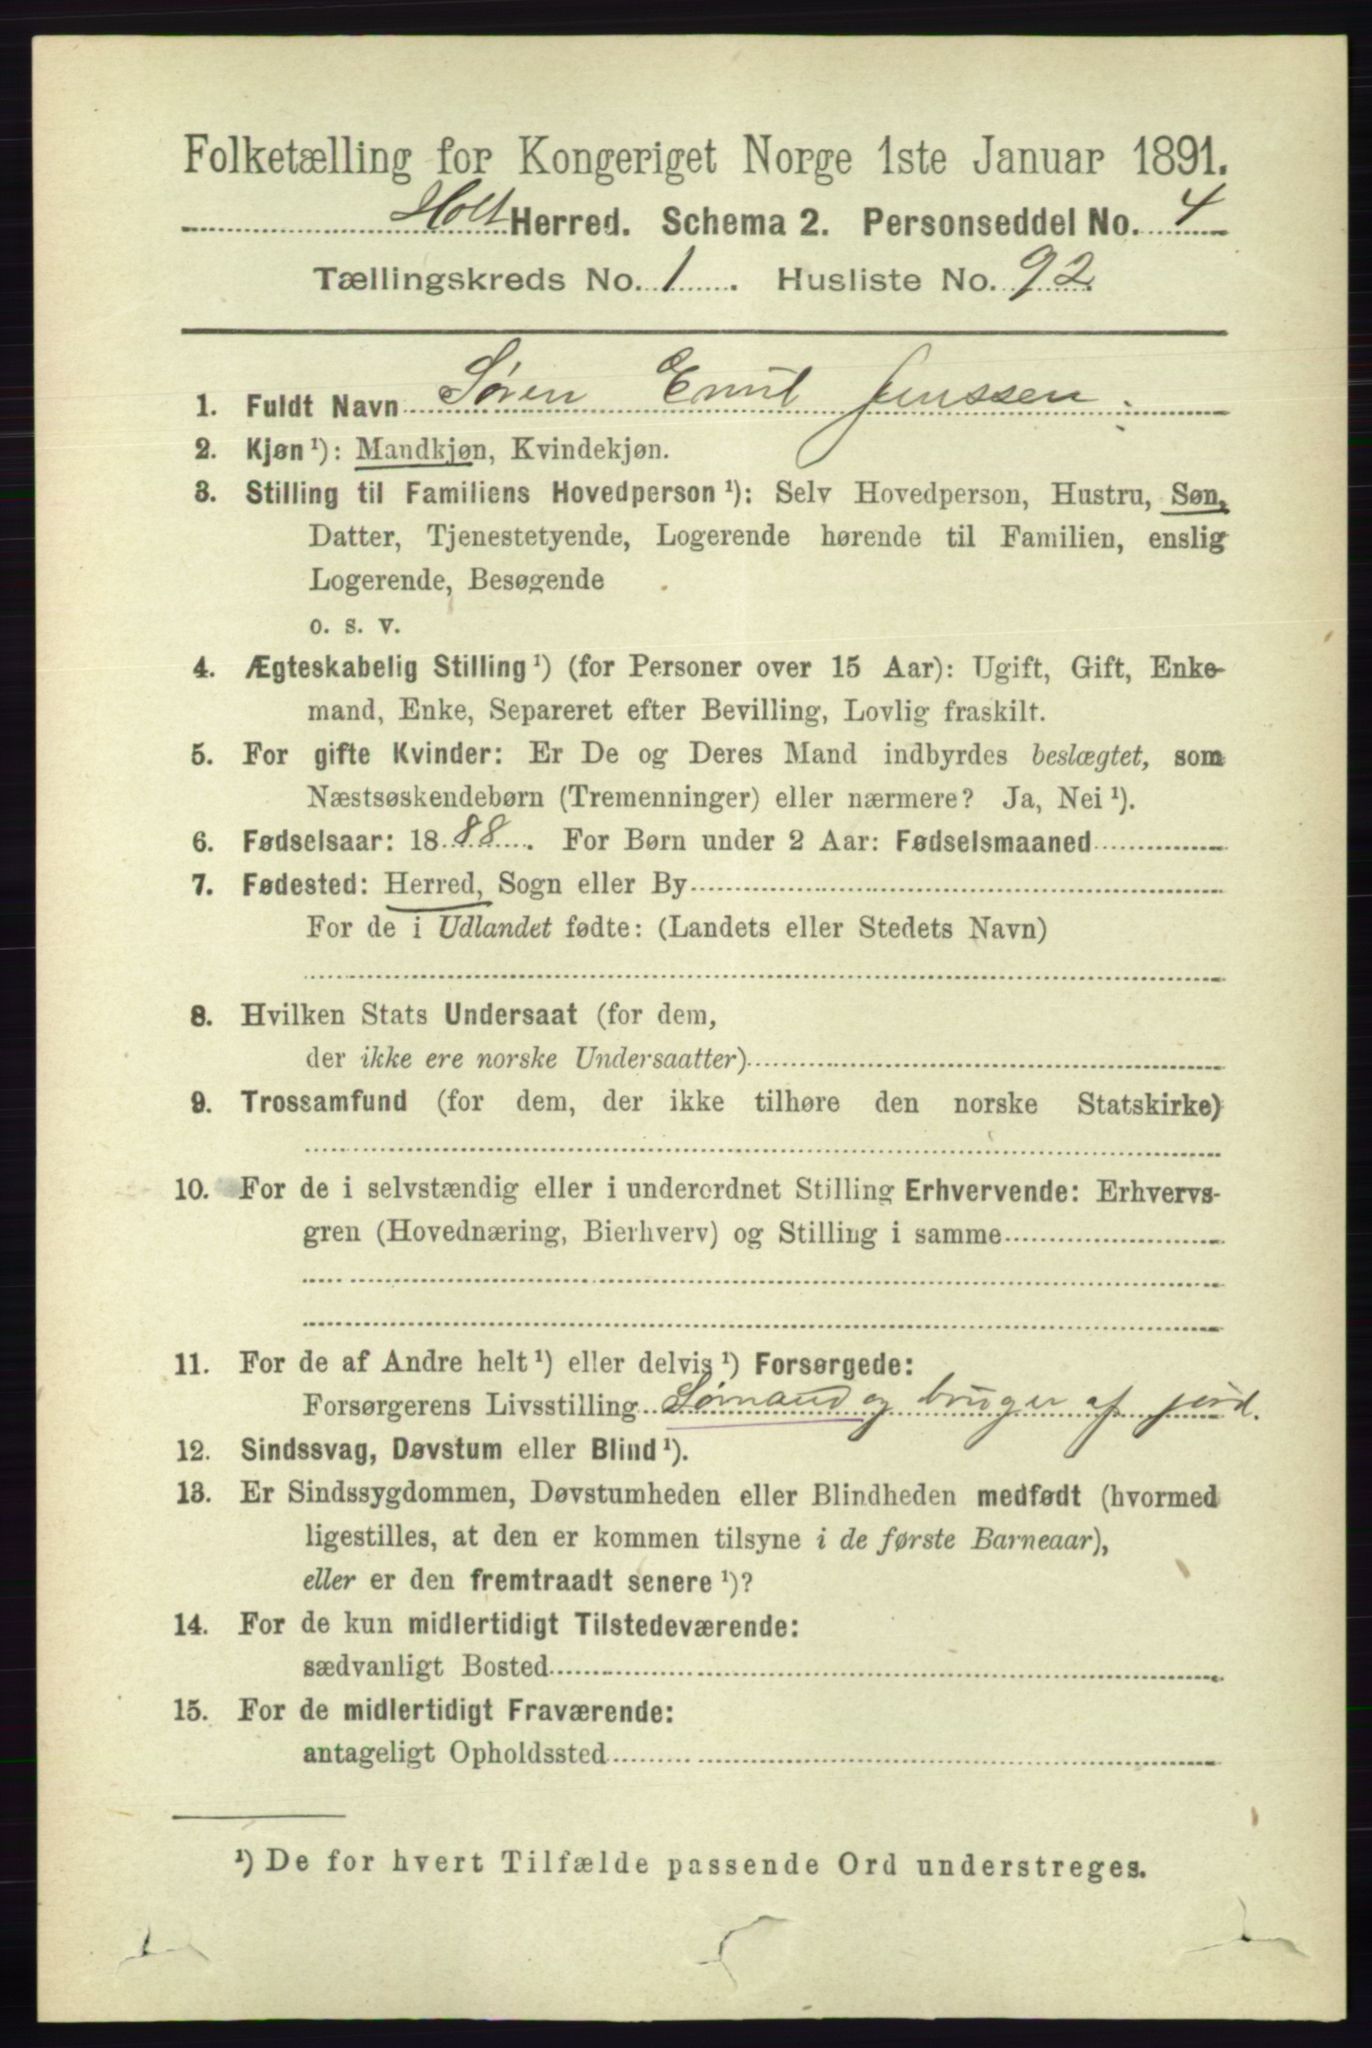 Folketælling for Kongeriget Norge 1ste Januar 1891.
Holt Herred. Schema 2. Personseddel No. 4
Tællingskreds No. 1. Husliste No. 92.
1. Fuldt Navn Søren Emil Jenssen.
2. Kjøn ¹): Mandkjøn, Kvindekjøn.
3. Stilling til Familiens Hovedperson ¹): Selv Hovedperson, Hustru, Søn,
Datter, Tjenestetyende, Logerende hørende til Familien, enslig
Logerende, Besøgende
o. s. v.
4. Ægteskabelig Stilling ¹) (for Personer over 15 Aar): Ugift, Gift, Enke-
mand, Enke, Separeret efter Bevilling, Lovlig fraskilt.
5. For gifte Kvinder: Er De og Deres Mand indbyrdes beslægtet, som
Næstsøskendebørn (Tremenninger) eller nærmere? Ja, Nei ¹).
6. Fødselsaar: 1888. For Børn under 2 Aar: Fødselsmaaned
7. Fødested: Herred, Sogn eller By
For de i Udlandet fødte: (Landets eller Stedets Navn)
8. Hvilken Stats Undersaat (for dem,
der ikke ere norske Undersaatter)
9. Trossamfund (for dem, der ikke tilhøre den norske Statskirke)
10. For de i selvstændig eller i underordnet Stilling Erhvervende: Erhvervs-
gren (Hovednæring, Bierhverv) og Stilling i samme
11. For de af Andre helt ¹) eller delvis ¹) Forsørgede:
Forsørgerens Livsstilling Sømand og bruger af jord.
12. Sindssvag, Døvstum eller Blind ¹).
13. Er Sindssygdommen, Døvstumheden eller Blindheden medfødt (hvormed
ligestilles, at den er kommen tilsyne i de første Barneaar),
eller er den fremtraadt senere ¹)?
14. For de kun midlertidigt Tilstedeværende:
sædvanligt Bosted
15. For de midlertidigt Fraværende:
antageligt Opholdssted
¹) De for hvert Tilfælde passende Ord understreges.